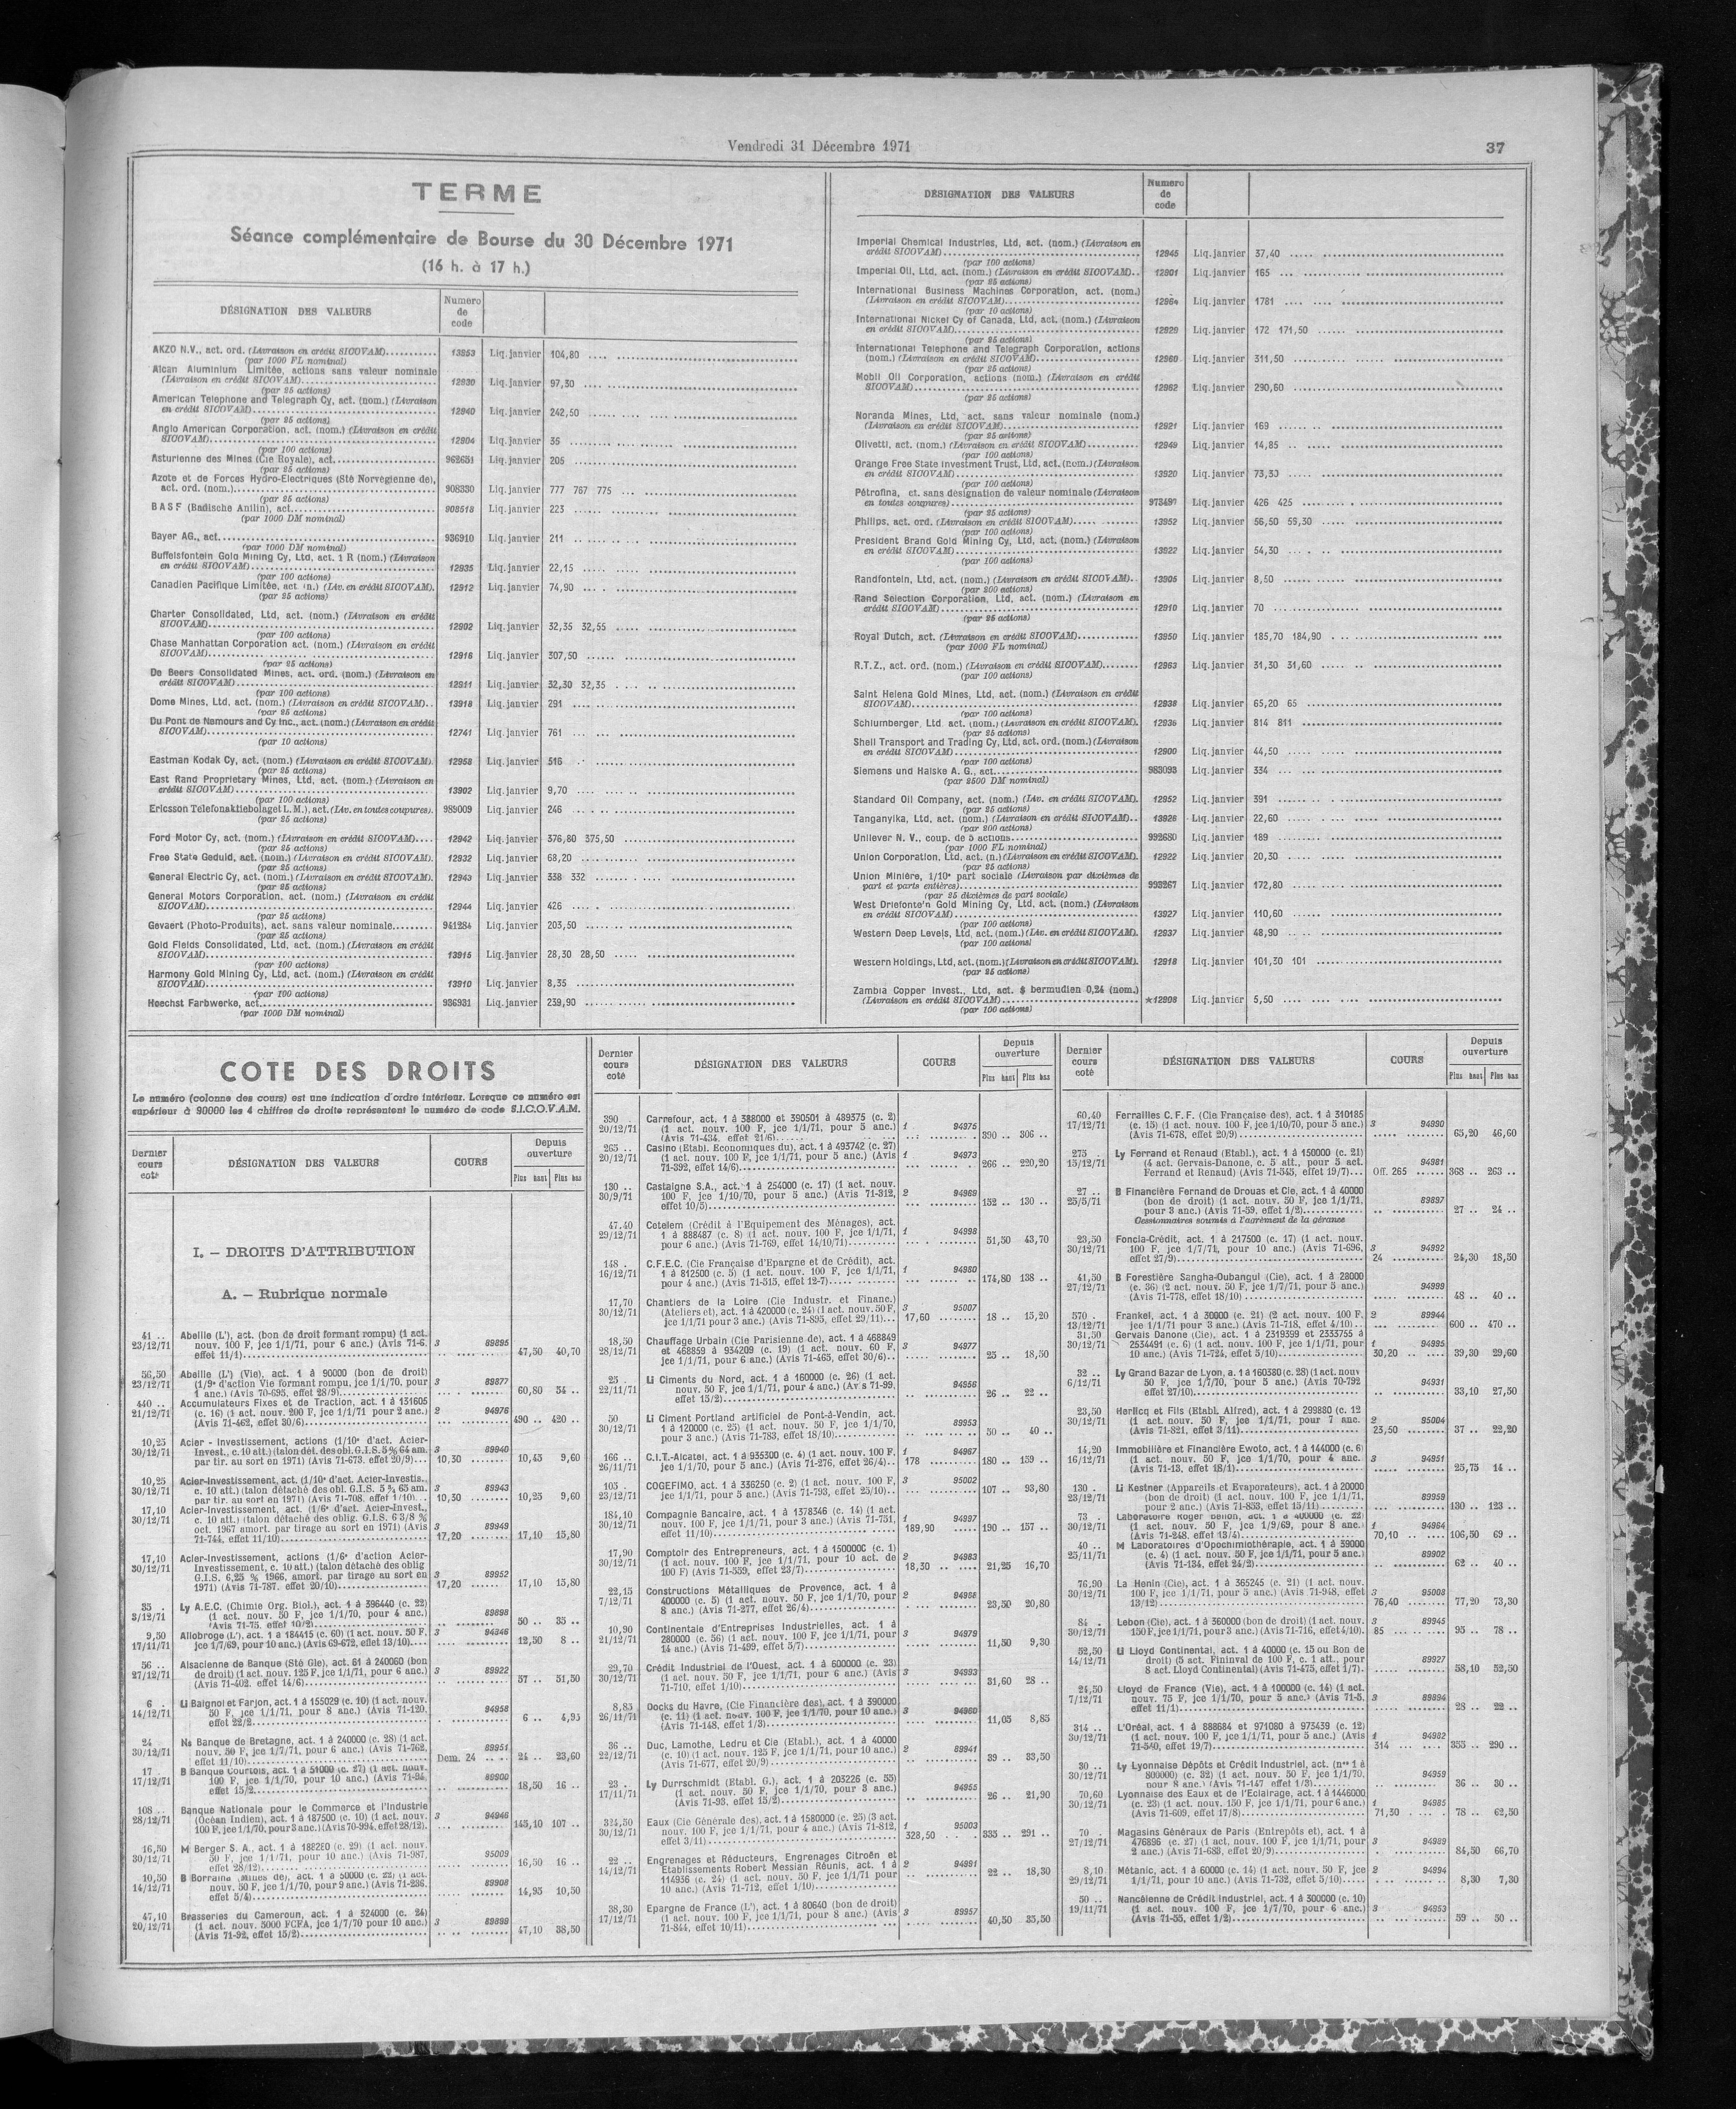 Vendredi 31 Décembre 1971
37
TERME
Séance complémentaire de Bourse du 30 Décembre 1971
(16 h. à 17 h.)
DÉSIGNATION DES VALEURS Numero de code
AKZO N.V., act. ord. (Livraison en crédit SICOVAM) 13953 Liq. janvier 104,80
(par 1000 FL nominal)
Alcan Aluminium Limitée, actions sans valeur nominale
(Livraison en crédit SICOVAM) 12930 Liq. janvier 97,30
(par 25 actions)
American Telephone and Telegraph Cy, act. (nom.) (Livraison
en crédit SICOVAM) 12940 Liq. janvier 242,50
(par 25 actions)
Anglo American Corporation, act. (nom.) (Livraison en crédit
SICOVAM) 12904 Liq. janvier 35
(par 100 actions)
Asturienne des Mines (Cie Royale), act. 962651 Liq. janvier 205
(par 25 actions)
Azote et de Forces Hydro-Electriques (Sté Norvégienne de),
act. ord. (nom.) 908330 Liq. janvier 777 767 775
(par 25 actions)
BASF (Badische Anilin), act. 908518 Liq. janvier 223
(par 1000 DM nominal)
Bayer AG., act. 936910 Liq. janvier 211
(par 1000 DM nominal)
Buffelsfontein Gold Mining Cy, Ltd, act. 1 R (nom.) (Livraison
en crédit SICOVAM) 12935 Liq. janvier 22,15
(par 100 actions)
Canadien Pacifique Limitée, act (n.) (Liv. en crédit SICOVAM). 12912 Liq. janvier 74,90
(par 25 actions)
Charter Consolidated, Ltd, act. (nom.) (Livraison en crédit
SICOVAM) 12902 Liq. janvier 32,35 32,55
(par 100 actions)
Chase Manhattan Corporation act. (nom.) (Livraison en crédit
SICOVAM) 12916 Liq. janvier 307,50
(par 25 actions)
De Beers Consolidated Mines, act. ord. (nom.) (Livraison en
crédit SICOVAM) 12911 Liq. janvier 32,30 32,35
(par 100 actions)
Dome Mines, Ltd, act. (nom.) (Livraison en crédit SICOVAM) 13918 Liq. janvier 291
(par 25 actions)
Du Pont de Nemours and Cy Inc., act. (nom.) (Livraison en crédit
SICOVAM) 12741 Liq. janvier 761
(par 10 actions)
Eastman Kodak Cy, act. (nom.) (Livraison en crédit SICOVAM). 12958 Liq. janvier 516
(par 25 actions)
East Rand Proprietary Mines, Ltd, act. (nom.) (Livraison en
crédit SICOVAM) 13902 Liq. janvier 9,70
(par 100 actions)
Ericsson Telefonaktiebolaget L.M.), act. (Liv. en toutes coupures). 985009 Liq. janvier 246
(par 25 actions)
Ford Motor Cy, act. (nom.) (Livraison en crédit SICOVAM) 12942 Liq. janvier 376,80 375,50
(par 25 actions)
Free State Geduld, act. (nom.) (Livraison en crédit SICOVAM). 12932 Liq. janvier 68,20
(par 25 actions)
General Electric Cy, act. (nom.) (Livraison en crédit SICOVAM). 12943 Liq. janvier 338 332
(par 25 actions)
General Motors Corporation, act. (nom.) (Livraison en crédit
SICOVAM) 12944 Liq. janvier 426
(par 25 actions)
Gevaert (Photo-Produits), act. sans valeur nominale 941284 Liq. janvier 203,50
(par 25 actions)
Gold Fields Consolidated, Ltd, act. (nom.) (Livraison en crédit
SICOVAM) 13915 Liq. janvier 28,30 28,50
(par 100 actions)
Harmony Gold Mining Cy, Ltd, act. (nom.) (Livraison en crédit
SICOVAM) 13910 Liq. janvier 8,35
(par 100 actions)
Hoechst Farbwerke, act. 936931 Liq. janvier 239,90
(par 1000 DM nominal)
DÉSIGNATION DES VALEURS Numero de code
Imperial Chemical Industries, Ltd, act. (nom.) (Livraison en
crédit SICOVAM) 12945 Liq. janvier 37,40
(par 100 actions)
Imperial Oil, Ltd, act. (nom.) (Livraison en crédit SICOVAM) 12901 Liq. janvier 165
(par 25 actions)
International Business Machines Corporation, act. (nom.)
(Livraison en crédit SICOVAM) 12964 Liq. janvier 1781
(par 10 actions)
International Nickel Cy of Canada, Ltd, act. (nom.) (Livraison
en crédit SICOVAM) 12929 Liq. janvier 172 171,50
(par 25 actions)
International Telephone and Telegraph Corporation, actions
(nom.) (Livraison en crédit SICOVAM) 12960 Liq. janvier 311,50
(par 25 actions)
Mobil Oil Corporation, actions (nom.) (Livraison en crédit
SICOVAM) 12962 Liq. janvier 290,60
(par 25 actions)
Noranda Mines, Ltd, act. sans valeur nominale (nom.)
(Livraison en crédit SICOVAM) 12921 Liq. janvier 169
(par 25 actions)
Olivetti, act. (nom.) (Livraison en crédit SICOVAM) 12949 Liq. janvier 14,85
(par 100 actions)
Orange Free State Investment Trust, Ltd, act. (nom.) (Livraison
en crédit SICOVAM) 13920 Liq. janvier 73,30
(par 100 actions)
Pétrofina, ct. sans désignation de valeur nominale (Livraison
en toutes coupures) 973497 Liq. janvier 426 425
(par 25 actions)
Philips, act. ord. (Livraison en crédit SICOVAM) 13952 Liq. janvier 56,50 56,30
(par 100 actions)
President Brand Gold Mining Cy, Ltd, act. (nom.) (Livraison
en crédit SICOVAM) 13922 Liq. janvier 54,30
(par 100 actions)
Randfontein, Ltd, act. (nom.) (Livraison en crédit SICOVAM) 13905 Liq. janvier 8,50
(par 200 actions)
Rand Selection Corporation, Ltd, act. (nom.) (Livraison en
crédit SICOVAM) 12910 Liq. janvier 70
(par 25 actions)
Royal Dutch, act. (Livraison en crédit SICOVAM) 13950 Liq. janvier 185,70 184,90
(par 1000 FL nominal)
R.T.Z., act. ord. (nom.) (Livraison en crédit SICOVAM) 12963 Liq. janvier 31,30 31,60
(par 100 actions)
Saint Helena Gold Mines, Ltd, act. (nom.) (Livraison en crédit
SICOVAM) 12938 Liq. janvier 65,20 65
(par 100 actions)
Schlumberger, Ltd. act. (nom.) (Livraison en crédit SICOVAM). 12936 Liq. janvier 814 811
(par 25 actions)
Shell Transport and Trading Cy, Ltd, act. ord. (nom.) (Livraison
en crédit SICOVAM) 12900 Liq. janvier 44,50
(par 100 actions)
Siemens und Halske A. G., act. 983093 Liq. janvier 334
(par 2500 DM nominal)
Standard Oil Company, act. (nom.) (Liv. en crédit SICOVAM). 12952 Liq. janvier 391
(par 25 actions)
Tanganyika, Ltd, act. (nom.) (Livraison en crédit SICOVAM) 13926 Liq. janvier 22,60
(par 200 actions)
Unilever N. V., coup. de 5 actions 992680 Liq. janvier 189
(par 1000 FL nominal)
Union Corporation, Ltd, act. (n.) (Livraison en crédit SICOVAM). 12922 Liq. janvier 20,30
(par 25 actions)
Union Minière, 1/10e part sociale (Livraison par dixièmes de
part et parts entières) 993267 Liq. janvier 172,80
(par 25 dixièmes de part sociale)
West Driefontein Gold Mining Cy, Ltd, act. (nom.) (Livraison
en crédit SICOVAM) 13927 Liq. janvier 110,60
(par 100 actions)
Western Deep Levels, Ltd, act. (nom.) (Liv. en crédit SICOVAM). 12937 Liq. janvier 48,90
(par 100 actions)
Western Holdings, Ltd, act. (nom.) (Livraison en crédit SICOVAM). 12918 Liq. janvier 101,30 101
(par 25 actions)
Zambia Copper Invest., Ltd, act. $ bermudien 0,24 (nom.)
(Livraison en crédit SICOVAM) ★12908 Liq. janvier 5,50
(par 100 actions)
COTE DES DROITS
Le numéro (colonne des cours) est une indication d'ordre intérieur. Lorsque ce numéro est
supérieur à 90000 les 4 chiffres de droite représentent le numéro de code S.I.C.O.V.A.M.
Dernier cours coté DÉSIGNATION DES VALEURS COURS Depuis ouverture Plus haut Plus bas
I. — DROITS D'ATTRIBUTION
A. — Rubrique normale
41 .. Abeille (L'), act. (bon de droit formant rompu) (1 act.
23/12/71 nouv. 100 F, jce 1/1/71, pour 6 anc.) (Avis 71-6, 3 89895
effet 11/1) 47,50 40,70
56,50 Abeille (L') (Vie), act. 1 à 90000 (bon de droit)
23/12/71 (1/9e d'action Vie formant rompu, jce 1/1/70, pour 3 89877
1 anc.) (Avis 70-695, effet 28/9) 60,80 54 ..
440 .. Accumulateurs Fixes et de Traction, act. 1 à 131605
21/12/71 (c. 16) (1 act. nouv. 200 F, jce 1/1/71 pour 2 anc.) 2 94976
(Avis 71-462, effet 30/6) 490 .. 420 ..
10,25 Acier - Investissement, actions (1/10e d'act. Acier-
30/12/71 Invest., c. 10 att.) (talon dét. des obl. G.I.S. 5 % 64 am. 3 89940
par tir. au sort en 1971) (Avis 71-673, effet 20/9) 10,30 10,45 9,60
10,25 Acier-Investissement, act. (1/10e d'act. Acier-Investis.,
30/12/71 c. 10 att.) (talon détaché des obl. G.I.S. 5 % 65 am. 3 89943
par tir. au sort en 1971) (Avis 71-708, effet 1/10) 10,50 10,25 9,60
17,10 Acier-Investissement, act. (1/6e d'act. Acier-Invest.,
30/12/71 c. 10 att.) (talon détaché des oblig. G.I.S. 6 3/8 %
oct. 1967 amort. par tirage au sort en 1971) (Avis 3 89949
71-744, effet 11/10) 17,20 17,10 15,80
17,10 Acier-Investissement, actions (1/6e d'action Acier-
30/12/71 Investissement, c. 10 att.) (talon détaché des oblig
G.I.S. 6,25 % 1966, amort. par tirage au sort en 3 89952
1971) (Avis 71-787, effet 20/10) 17,20 17,10 15,80
35 . Ly A.E.C. (Chimie Org. Biol.), act. 1 à 396440 (c. 22)
3/12/71 (1 act. nouv. 50 F, jce 1/1/70, pour 4 anc.) 89898
(Avis 71-75, effet 10/2) 50 .. 35 ..
9,50 Allobroge (L'), act. 1 à 184415 (c. 60) (1 act. nouv. 50 F, 3 94846
17/11/71 jce 1/7/69, pour 10 anc.) (Avis 69-672, effet 13/10) 12,50 8 ..
56 .. Alsacienne de Banque (Sté Gle), act. 61 à 240060 (bon
27/12/71 de droit) (1 act. nouv. 125 F, jce 1/1/71, pour 6 anc.) 3 89922
(Avis 71-402, effet 14/6) 57 .. 51,50
6 . Li Baignol et Farjon, act. 1 à 155029 (c. 10) (1 act. nouv.
14/12/71 50 F, jce 1/1/71, pour 8 anc.) (Avis 71-120, 94958
effet 22/2 6 .. 4,95
24 Na Banque de Bretagne, act. 1 à 240000 (c. 28) (1 act.
30/12/71 nouv. 50 F, jce 1/7/71, pour 6 anc.) (Avis 71-762, 89951
effet 11/10) Dem. 24 24 .. 23,60
17 B Banque Courtois, act. 1 à 51000 (c. 27) (1 act. nouv.
17/12/71 100 F, jce 1/1/70, pour 10 anc.) (Avis 71-94, 89900
effet 15/2 18,50 16 ..
108 .. Banque Nationale pour le Commerce et l'Industrie
28/12/71 (Océan Indien), act. 1 à 187500 (c. 10) (1 act. nouv. 3 94946
100 F, jce 1/1/70, pour 3 anc.) (Avis 70-994, effet 28/12). 145,10 107 ..
16,50 M Berger S. A., act. 1 à 188280 (c. 29) (1 act. nouv.
30/12/71 50 F, jce 1/1/71, pour 10 anc.) (Avis 71-987, 95009
effet 28/12) 16,50 16 ..
10,50 B Borraine (Mines de), act. 1 à 50000 (c. 22) (1 act.
14/12/71 nouv. 50 F, jce 1/1/70, pour 9 anc.) (Avis 71-236, 89908
effet 5/4) 14,95 10,50
47,10 Brasseries du Cameroun, act. 1 à 324000 (c. 24)
20/12/71 (1 act. nouv. 5000 FCFA, jce 1/7/70 pour 10 anc.) 3 89898
(Avis 71-92, effet 15/2) 47,10 38,50
Dernier cours coté DÉSIGNATION DES VALEURS COURS Depuis ouverture Plus haut Plus bas
390 Carrefour, act. 1 à 388000 et 390501 à 489375 (c. 2)
20/12/71 (1 act. nouv. 100 F, jce 1/1/71, pour 5 anc.) 1 94975
(Avis 71-434, effet 21/6) 390 .. 306 ..
265 .. Casino (Etabl. Economiques du), act. 1 à 493742 (c. 27)
20/12/71 (1 act. nouv. 100 F, jce 1/1/71, pour 5 anc.) (Avis 1 94973
71-392, effet 14/6) 266 .. 220,20
130 .. Castaigne S.A., act. 1 à 254000 (c. 17) (1 act. nouv.
30/9/71 100 F, jce 1/10/70, pour 5 anc.) (Avis 71-312, 2 94969
effet 10/5) 152 .. 130 ..
47,40 Cetelem (Crédit à l'Equipement des Ménages), act.
29/12/71 1 à 888487 (c. 8) (1 act. nouv. 100 F, jce 1/1/71, 1 94998
pour 6 anc.) (Avis 71-769, effet 14/10/71) 51,50 43,70
148 . C.F.E.C. (Cie Française d'Epargne et de Crédit), act.
16/12/71 1 à 812500 (c. 5) (1 act. nouv. 100 F, jce 1/1/71, 1 94980
pour 4 anc.) (Avis 71-515, effet 12-7) 174,80 138 ..
17,70 Chantiers de la Loire (Cie Industr. et Financ.)
30/12/71 (Ateliers et), act. 1 à 420000 (c. 24) (1 act. nouv. 50 F, 3 95007
jce 1/1/71 pour 3 anc.) (Avis 71-895, effet 29/11) 17,60 18 .. 15,20
18,50 Chauffage Urbain (Cie Parisienne de), act. 1 à 468849
28/12/71 et 468859 à 934209 (c. 19) (1 act. nouv. 60 F, 3 94977
jce 1/1/71, pour 6 anc.) (Avis 71-465, effet 30/6) 25 .. 18,50
25 . Li Ciments du Nord, act. 1 à 160000 (c. 26) (1 act.
22/11/71 nouv. 50 F, jce 1/1/71, pour 4 anc.) (Avis 71-99, 94956
effet 15/2) 26 .. 22 ..
50 Li Ciment Portland artificiel de Pont-à-Vendin, act.
30/12/71 1 à 120000 (c. 25) (1 act. nouv. 50 F, jce 1/1/70, 89953
pour 3 anc.) (Avis 71-783, effet 18/10) 50 .. 40 ..
166 .. C.I.T.-Alcatel, act. 1 à 935300 (c. 4) (1 act. nouv. 100 F, 1 94967
26/11/71 jce 1/1/70, pour 5 anc.) (Avis 71-276, effet 26/4) 178 180 .. 159 ..
105 . COGEFIMO, act. 1 à 336250 (c. 2) (1 act. nouv. 100 F, 3 95002
23/12/71 jce 1/1/71, pour 5 anc.) (Avis 71-793, effet 25/10) 107 .. 93,80
184,10 Compagnie Bancaire, act. 1 à 1378346 (c. 14) (1 act.
30/12/71 nouv. 100 F, jce 1/1/71, pour 3 anc.) (Avis 71-751, 1 94997
effet 11/10) 189,90 190 .. 157 ..
17,90 Comptoir des Entrepreneurs, act. 1 à 1500000 (c. 1)
30/12/71 (1 act. nouv. 100 F, jce 1/1/71, pour 10 act. de 2 94983
100 F) (Avis 71-559, effet 23/7) 18,30 21,25 16,70
22,15 Constructions Métalliques de Provence, act. 1 à
7/12/71 400000 (c. 5) (1 act. nouv. 50 F, jce 1/1/70, pour 2 94968
8 anc.) (Avis 71-277, effet 26/4) 23,50 20,80
10,90 Continentale d'Entreprises Industrielles, act. 1 à
21/12/71 280000 (c. 56) (1 act. nouv. 100 F, jce 1/1/71, pour 3 94979
14 anc.) (Avis 71-499, effet 5/7) 11,50 9,30
29,70 Crédit Industriel de l'Ouest, act. 1 à 600000 (c. 23)
30/12/71 (1 act. nouv. 50 F, jce 1/1/71, pour 6 anc.) (Avis 3 94993
71-710, effet 1/10) 31,60 28 ..
8,85 Docks du Havre, (Cie Financière des), act. 1 à 390000
26/11/71 (c. 11) (1 act. nouv. 100 F, jce 1/1/70, pour 10 anc.) 3 94960
(Avis 71-148, effet 1/3) 11,05 8,85
36 .. Duc, Lamothe, Ledru et Cie (Etabl.), act. 1 à 40000
22/12/71 (c. 10) (1 act. nouv. 125 F, jce 1/1/71, pour 10 anc.) 2 89941
(Avis 71-677, effet 20/9) 39 .. 33,50
23 . Ly Durrschmidt (Etabl. G.), act. 1 à 203226 (c. 55)
17/11/71 (1 act. nouv. 50 F, jce 1/1/70, pour 3 anc.) 94955
(Avis 71-93, effet 15/2) 26 .. 21,90
324,50 Eaux (Cie Générale des), act. 1 à 1580000 (c. 25) (3 act.
30/12/71 nouv. 100 F, jce 1/1/71, pour 4 anc.) (Avis 71-812, 1 95003
effet 3/11) 328,50 335 .. 291 ..
22 .. Engrenages et Réducteurs, Engrenages Citroën et
14/12/71 Etablissements Robert Messian Réunis, act. 1 à 2 94991
114936 (c. 24) (1 act. nouv. 50 F, jce 1/1/71 pour
10 anc.) (Avis 71-712, effet 1/10) 22 .. 18,30
38,30 Epargne de France (L'), act. 1 à 80640 (bon de droit)
17/12/71 (1 act. nouv. 100 F, jce 1/1/71, pour 8 anc.) (Avis 3 89957
71-844, effet 10/11) 40,50 35,50
Dernier cours coté DÉSIGNATION DES VALEURS COURS Depuis ouverture Plus haut Plus bas
60,40 Ferrailles C. F. F. (Cie Française des), act. 1 à 310185
17/12/71 (c. 15) (1 act. nouv. 100 F, jce 1/10/70, pour 5 anc.) 3 94990
(Avis 71-678, effet 20/9) 65,20 46,60
275 . Ly Ferrand et Renaud (Etabl.), act. 1 à 150000 (c. 21)
15/12/71 (4 act. Gervais-Danone, c. 5 att., pour 5 act. 94981
Ferrand et Renaud) (Avis 71-545, effet 19/7) Off. 265 368 .. 263 ..
27 .. B Financière Fernand de Drouas et Cie, act. 1 à 40000
25/5/71 (bon de droit) (1 act. nouv. 50 F, jce 1/1/71, 89897
pour 3 anc.) (Avis 71-59, effet 1/2) 27 .. 24 ..
Cessionnaires soumis à l'agrément de la gérance
23,50 Foncia-Crédit, act. 1 à 217500 (c. 17) (1 act. nouv.
30/12/71 100 F, jce 1/7/71, pour 10 anc.) (Avis 71-696, 3 94992
effet 27/9) 24 24,30 18,50
41,50 B Forestière Sangha-Oubangui (Cie), act. 1 à 28000
27/12/71 (c. 36) (2 act. nouv. 50 F, jce 1/7/71, pour 5 anc.) 94999
(Avis 71-778, effet 18/10) 48 .. 40 ..
570 . Frankel, act. 1 à 30000 (c. 21) (2 act. nouv. 100 F, 2 89944
13/12/71 jce 1/1/71 pour 3 anc.) (Avis 71-718, effet 4/10) 600 .. 470 ..
31,50 Gervais Danone (Cie), act. 1 à 2319399 et 2333755 à
30/12/71 2534491 (c. 6) (1 act. nouv. 100 F, jce 1/1/71, pour 1 94995
10 anc.) (Avis 71-724, effet 5/10) 30,20 39,30 29,60
32 .. Ly Grand Bazar de Lyon, a. 1 à 160380 (c. 28) (1 act. nouv
6/12/71 50 F, jce 1/7/70, pour 5 anc.) (Avis 70-792 94931
effet 27/10) 33,10 27,50
23,50 Herlicq et Fils (Etabl. Alfred), act. 1 à 299880 (c. 12
30/12/71 (1 act. nouv. 50 F, jce 1/1/71, pour 7 anc. 2 95004
(Avis 71-821, effet 3/11) 23,50 37 .. 22,20
14,20 Immobilière et Financière Ewoto, act. 1 à 144000 (c. 6)
16/12/71 (1 act. nouv. 50 F, jce 1/1/70, pour 4 anc. 3 94951
(Avis 71-13, effet 18/1) 25,75 14 ..
130 . Li Kestner (Appareils et Evaporateurs), act. 1 à 20000
23/12/71 (bon de droit) (1 act. nouv. 100 F, jce 1/1/71, 89959
pour 2 anc.) (Avis 71-853, effet 15/11) 130 .. 123 ..
73 . Laboratoire Roger Bellon, act. 1 à 400000 (c. 22)
30/12/71 (1 act. nouv. 50 F, jce 1/9/69, pour 8 anc.) 1 94964
(Avis 71-248, effet 13/4) 70,10 106,50 69 ..
40 .. M Laboratoires d'Opochimiothérapie, act. 1 à 39000
25/11/71 (c. 4) (1 act. nouv. 50 F, jce 1/1/71, pour 5 anc.) 89902
(Avis 71-134, effet 24/2) 62 .. 40 ..
76,90 La Hénin (Cie), act. 1 à 365245 (c. 21) (1 act. nouv.
30/12/71 100 F, jce 1/1/71, pour 5 anc.) (Avis 71-948, effet 3 95008
13/12) 76,40 77,20 73,30
84 . Lebon (Cie), act. 1 à 360000 (bon de droit) (1 act. nouv. 3 89945
30/12/71 150 F, jce 1/1/71, pour 3 anc.) (Avis 71-716, effet 4/10). 85 95 .. 78 ..
52,50 Li Lloyd Continental, act. 1 à 40000 (c. 15 ou Bon de
14/12/71 droit) (5 act. Fininval de 100 F, c. 1 att., pour 89927
8 act. Lloyd Continental) (Avis 71-475, effet 1/7). 58,10 52,50
24,50 Lloyd de France (Vie), act. 1 à 100000 (c. 14) (1 act.
7/12/71 nouv. 75 F, jce 1/1/70, pour 5 anc.) (Avis 71-5, 3 89894
effet 11/1) 28 .. 22 ..
314 .. L'Oréal, act. 1 à 888684 et 971080 à 973439 (c. 12)
30/12/71 (1 act. nouv. 100 F, jce 1/1/71, pour 5 anc.) (Avis 1 94982
71-540, effet 19/7) 314 355 .. 290 ..
30 .. Ly Lyonnaise Dépôts et Crédit Industriel, act. (nos 1 à
30/12/71 800000) (c. 32) (1 act. nouv. 50 F, jce 1/1/70, 94959
pour 8 anc.) (Avis 71-147 effet 1/3) 36 .. 30 ..
70,60 Lyonnaise des Eaux et de l'Eclairage, act. 1 à 1446000
30/12/71 (c. 23) (1 act. nouv. 150 F, jce 1/1/71, pour 6 anc.) 1 94985
(Avis 71-609, effet 17/8) 71,30 78 .. 62,50
70 .. Magasins Généraux de Paris (Entrepôts et), act. 1 à
27/12/71 476896 (c. 27) (1 act. nouv. 100 F, jce 1/1/71, pour 3 94989
2 anc.) (Avis 71-683, effet 20/9) 84,50 66,70
8,10 Métanic, act. 1 à 60000 (c. 14) (1 act. nouv. 50 F, jce 2 94994
29/12/71 1/1/71, pour 10 anc.) (Avis 71-732, effet 5/10) 8,30 7,30
50 .. Nancéienne de Crédit Industriel, act. 1 à 300000 (c. 10)
19/11/71 (1 act. nouv. 100 F, jce 1/7/70, pour 6 anc.) 3 94953
(Avis 71-55, effet 1/2) 59 .. 50 ..